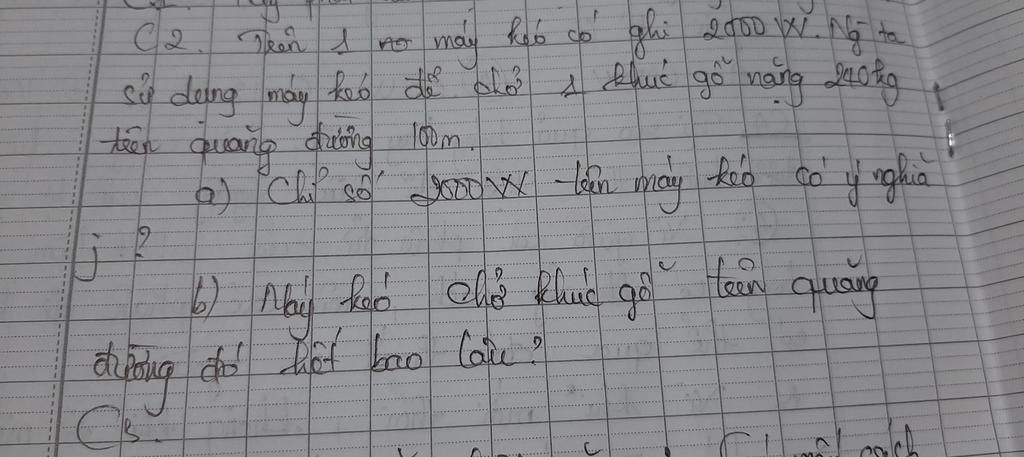 C2. Trên 1 máy kéo có ghi 2000W. Ng ta
sử dụng máy kéo để chở 1 khúc gỗ nặng 240kg
trên quãng đường 100m.
a) Chỉ số 2000W trên máy kéo có ý nghĩa
j ?
b) Máy kéo chở khúc gỗ trên quãng
đường đó hết bao lâu?
C3.